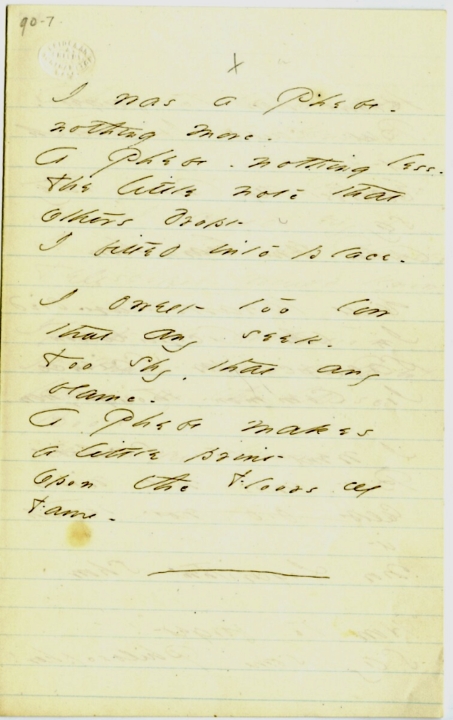 90-7
x
I was a Phebe -
nothing more -
A Phebe - nothing less -
The little note that
others dropt
I fitted into place -
I dwelt too low
that any seek -
Too shy, that any
blame -
A Phebe makes
a little print
Upon the Floors of
Fame -